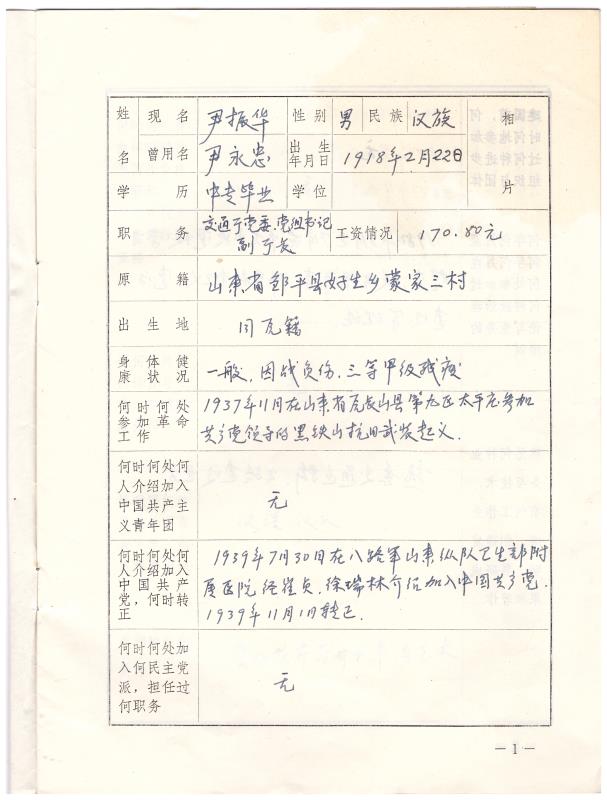 姓 现名 尹振华 性别 男 民族 汉族 相
名 曾用名 尹永忠 出生年月日 1918年2月22日
学历 中专毕业 学位 片
职务 交通厅党委.党组书记 副厅长 工资情况 170.80元
原籍 山东省邹平县好生乡蒙家三村
出生地 同原籍
身体健
康状况 一般,因战负伤.三等甲级残废
何时何处 1937年11月在山东省原长山县第九区太平庄参加
参加革命 共产党领导的黑铁山抗日武装起义.
工作
何时何处何
人介绍加入
中国共产主 无
义青年团
何时何处何 1939年7月30日在八路军山东纵队卫生部附
人介绍加入
中国共产 属医院经崔贞.徐瑞林介绍加入中国共产党.
党,何时转 1939年11月1日转正.
正
何时何处加
入何民主党
派,担任过 无
何职务
—1—